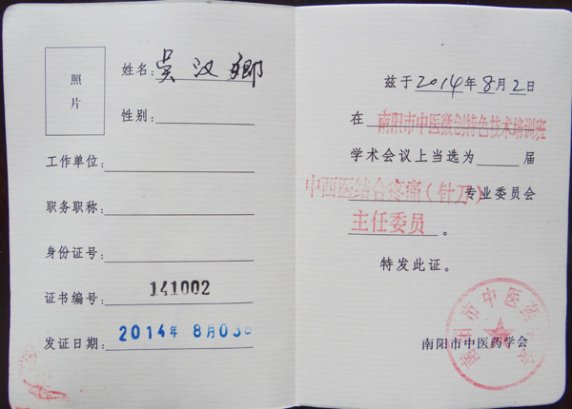 照
片
姓名：吴汉乡
性别：
工作单位：
职务职称：
身份证号：
证书编号：141002
发证日期：2014年 8月03日
兹于2014年8月2日
在南阳市中医微创特色技术培训班
学术会议上当选为 届
中西医结合疼痛（针刀）专业委员会
主任委员。
特发此证。
南阳市中医药学会
南阳市中医药学会